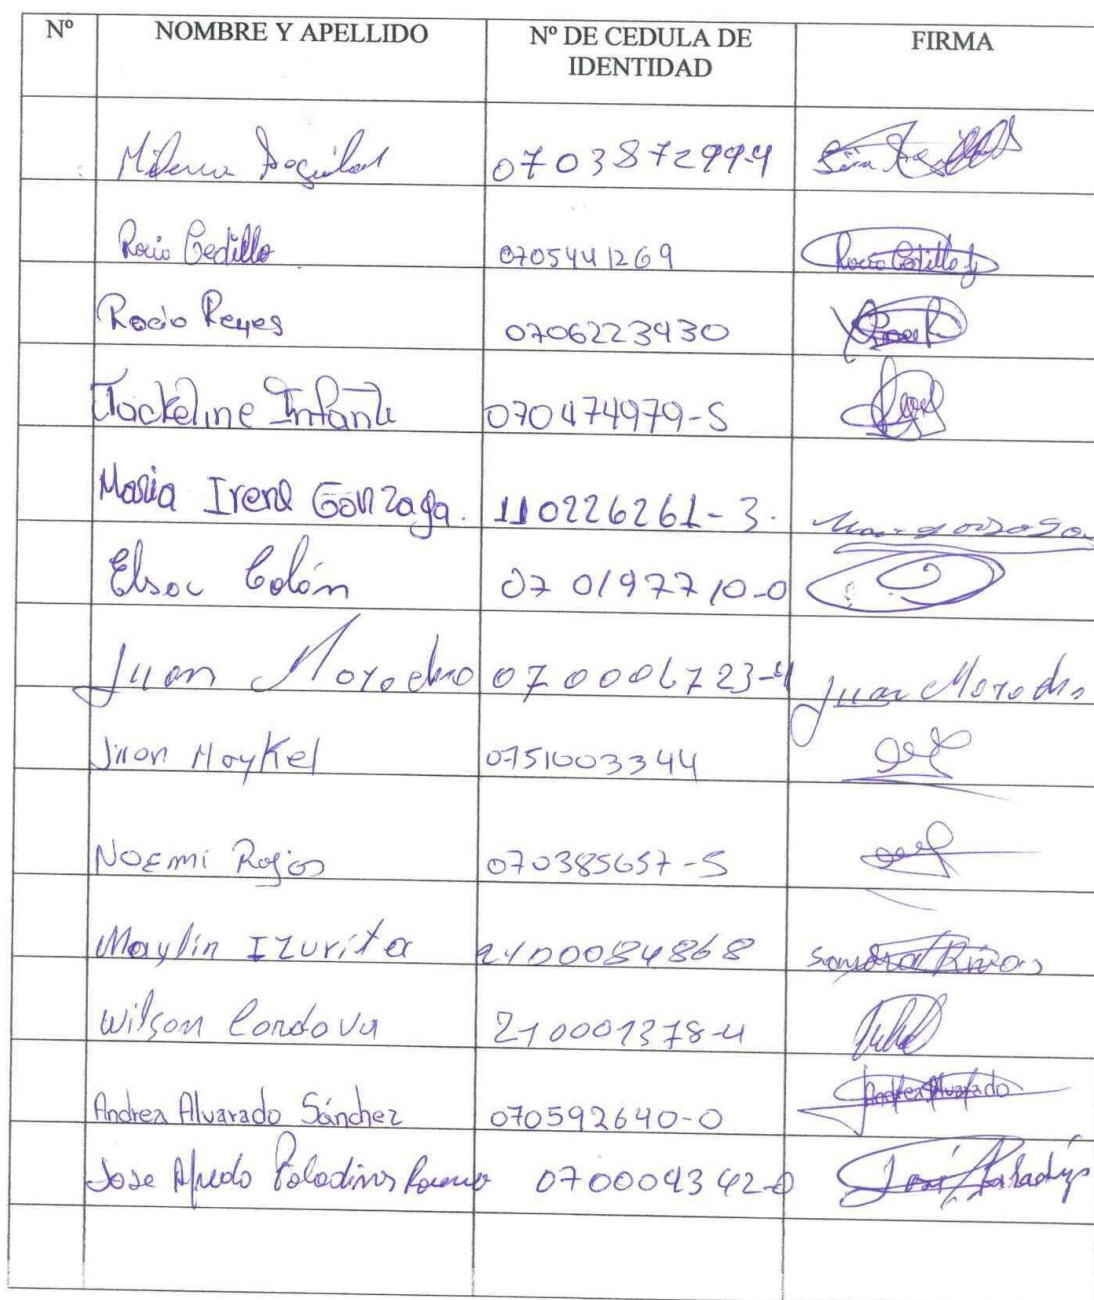 Nº NOMBRE Y APELLIDO Nº DE CEDULA DE IDENTIDAD FIRMA
Milena Aguilar 070387299-4
Rocio Cedillo 0705441269 Rocio Cedillo
Rocio Reyes 0706223430
Jackeline Infante 070474979-5
Maria Irene Gonzaga. 110226261-3.
Colón 07 0197710-0
Juan Morocho 070006723-4 Juan Morocho
Maykel 0751003344
NOEmi Rojas 070385657-5
Maylin Izurita 2100084868 Rivas
Wilson Cordova 210001378-4
Andrea Alvarado Sánchez 070592640-0 Andrea Alvarado
Jose Alfredo Paladines 070004342-0 José Paladines